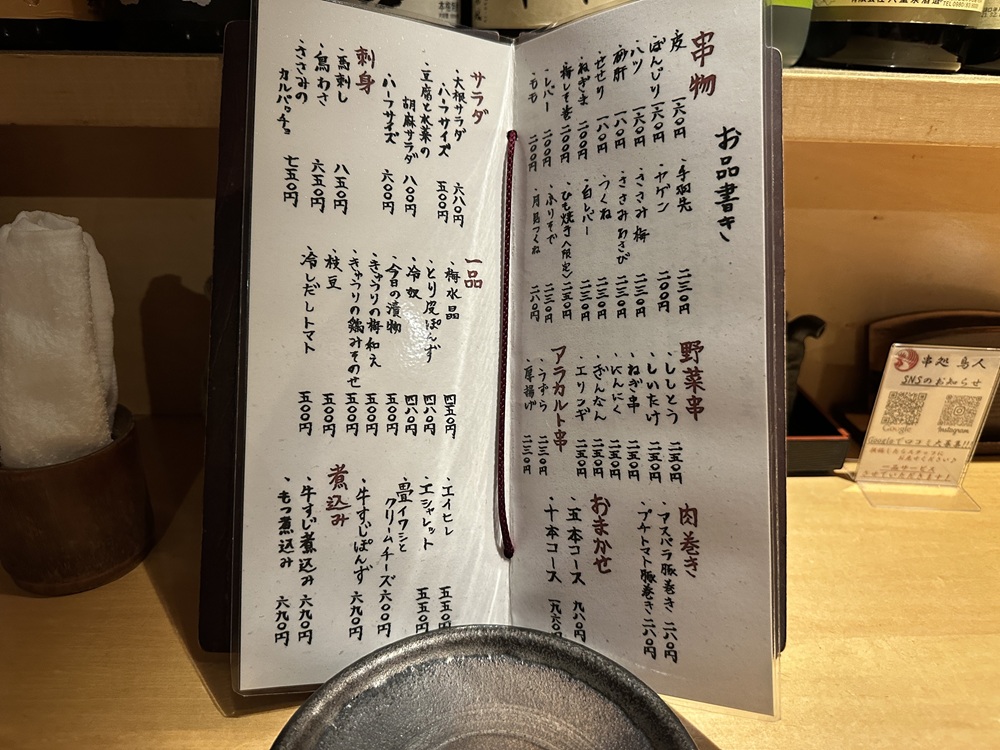 お品書き
串物
皮 一六〇円
ぼんじり 一六〇円
ハツ 一六〇円
砂肝 一八〇円
せせり 一八〇円
ねぎま 二〇〇円
梅しそ巻 二〇〇円
レバー 二〇〇円
もも 二〇〇円
手羽先 二三〇円
ヤゲン 二〇〇円
ささみ梅 二三〇円
ささみわさび 二三〇円
つくね 二三〇円
白レバー 二三〇円
ひも焼き(限定) 二五〇円
ふりそで 二三〇円
月見つくね 二八〇円
野菜串
・ししとう 二五〇円
・しいたけ 二五〇円
・ねぎ串 二五〇円
・にんにく 二五〇円
・ぎんなん 二五〇円
・エリンギ 二五〇円
アラカルト串
・うずら 二三〇円
・厚揚げ 二三〇円
肉巻き
・アスパラ豚巻き 二八〇円
・プチトマト豚巻き 二八〇円
おまかせ
・五本コース 九八〇円
・十本コース 一九六〇円
サラダ
・大根サラダ 六八〇円
ハーフサイズ 五〇〇円
・豆腐と水菜の
胡麻サラダ 八〇〇円
ハーフサイズ 六〇〇円
刺身
・馬刺し 八五〇円
・鳥わさ 六五〇円
・ささみの
カルパッチョ 七五〇円
一品
・梅水晶 四五〇円
・とり皮ぽんず 四八〇円
・冷奴 四八〇円
・今日の漬物 五〇〇円
・きゅうりの梅和え 五〇〇円
・きゅうりの鶏みそのせ 五〇〇円
・枝豆 五〇〇円
・冷しだしトマト 五〇〇円
・エイヒレ 五五〇円
・エシャレット 五五〇円
・畳イワシと
クリームチーズ 六〇〇円
・牛すじぽんず 六九〇円
煮込み
・牛すじ煮込み 六九〇円
・もつ煮込み 六九〇円
串処 鳥人
SNSのお知らせ
Google
Instagram
Googleで口コミ大募集!!
投稿したらスタッフに
お見せください♪
一品サービス
させていただきます!